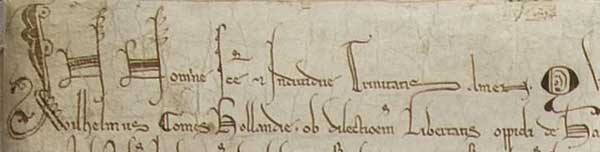 IN Nomine Sce ⁊ Individue Trinitatis. Amen.
Wilhelmus Comes Hollandie. ob dilectioem Libertatis oppidi de